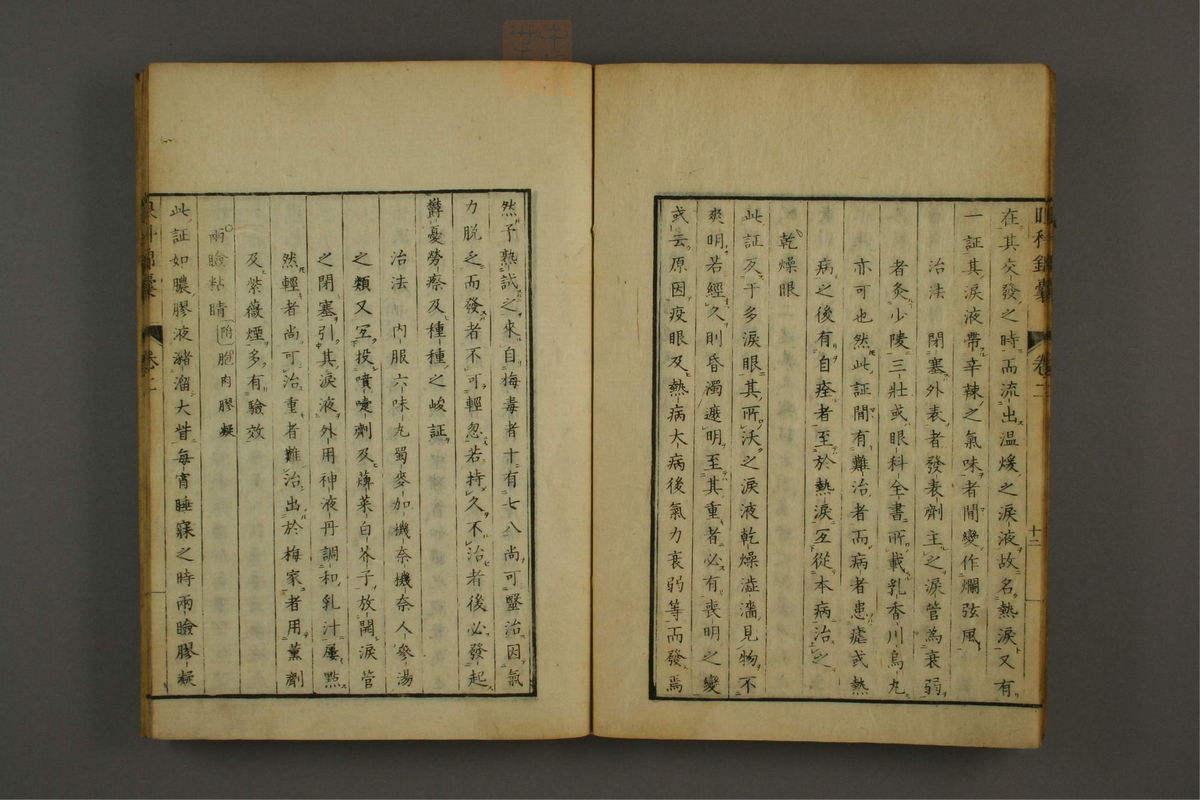 眼科錦囊 卷二 十二
在其交發之時而流出溫煖之淚液故名熱淚又有
一証其淚液帶辛辣之氣味者間變作爛弦風
治法 閉塞外表者發表劑主之淚管為衰弱
者灸少陵三壯或眼科全書所載乳香川烏丸
亦可也然此証間有難治者而病者患瘧或熱
病之後有自痊者至於熱淚互從本病治之
乾燥眼
此証反于多淚眼其所沃之淚液乾燥澁濇見物不
爽明若經久則昏濁遮明至其重者必有喪明之變
或云原因疫眼及熱病大病後氣力衰弱等而發焉
然予熟試之來自梅毒者十有七八尚可毉治因氣
力脫乏而發者不可輕忽若持久不治者後必發起
欝憂勞瘵及種種之峻証
治法 內服六味丸蜀麥加機奈機奈人參湯
之類又互投噴嚏劑及蓽茇白芥子放開淚管
之閉塞引其淚液外用神液丹調和乳汁屢點
然輕者尚可治重者難治出於梅家者用薰劑
及紫薇煙多有驗效
兩瞼粘睛 附胞肉膠凝
此証如膿膠液瀦溜大眥每宵睡寐之時兩瞼膠凝
眼科錦囊 卷二